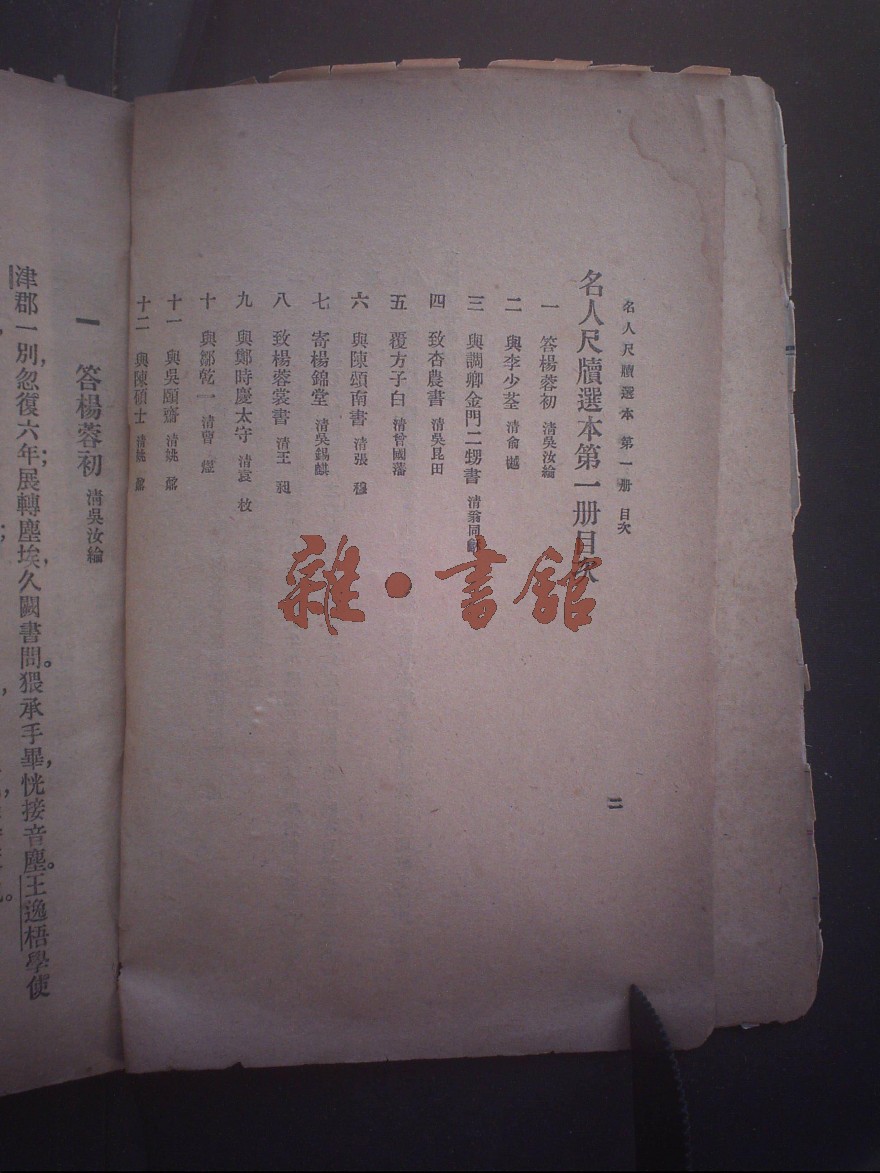 名人尺牘選本 第一册 目次
名人尺牘選本第一册目次
一 答楊蓉初 清吳汝綸
二 與李少荃 清俞樾
三 與調卿金門二甥書 清翁同龢
四 致杏農書 清吳昆田
五 覆方子白 清曾國藩
六 與陳頌南書 清張穆
七 寄楊錦堂 清吳錫麒
八 致楊蓉裳書 清王昶
九 與鄭時慶太守 清袁枚
十 與鄒乾一 清曹煜
十一 與吳頤齋 清姚鼐
十二 與陳碩士 清姚鼐
二
雜·書館
一 答楊蓉初 清吳汝綸
津郡一別，忽復六年；展轉塵埃，久闕書問。猥承手畢，恍接音塵。王逸梧學使